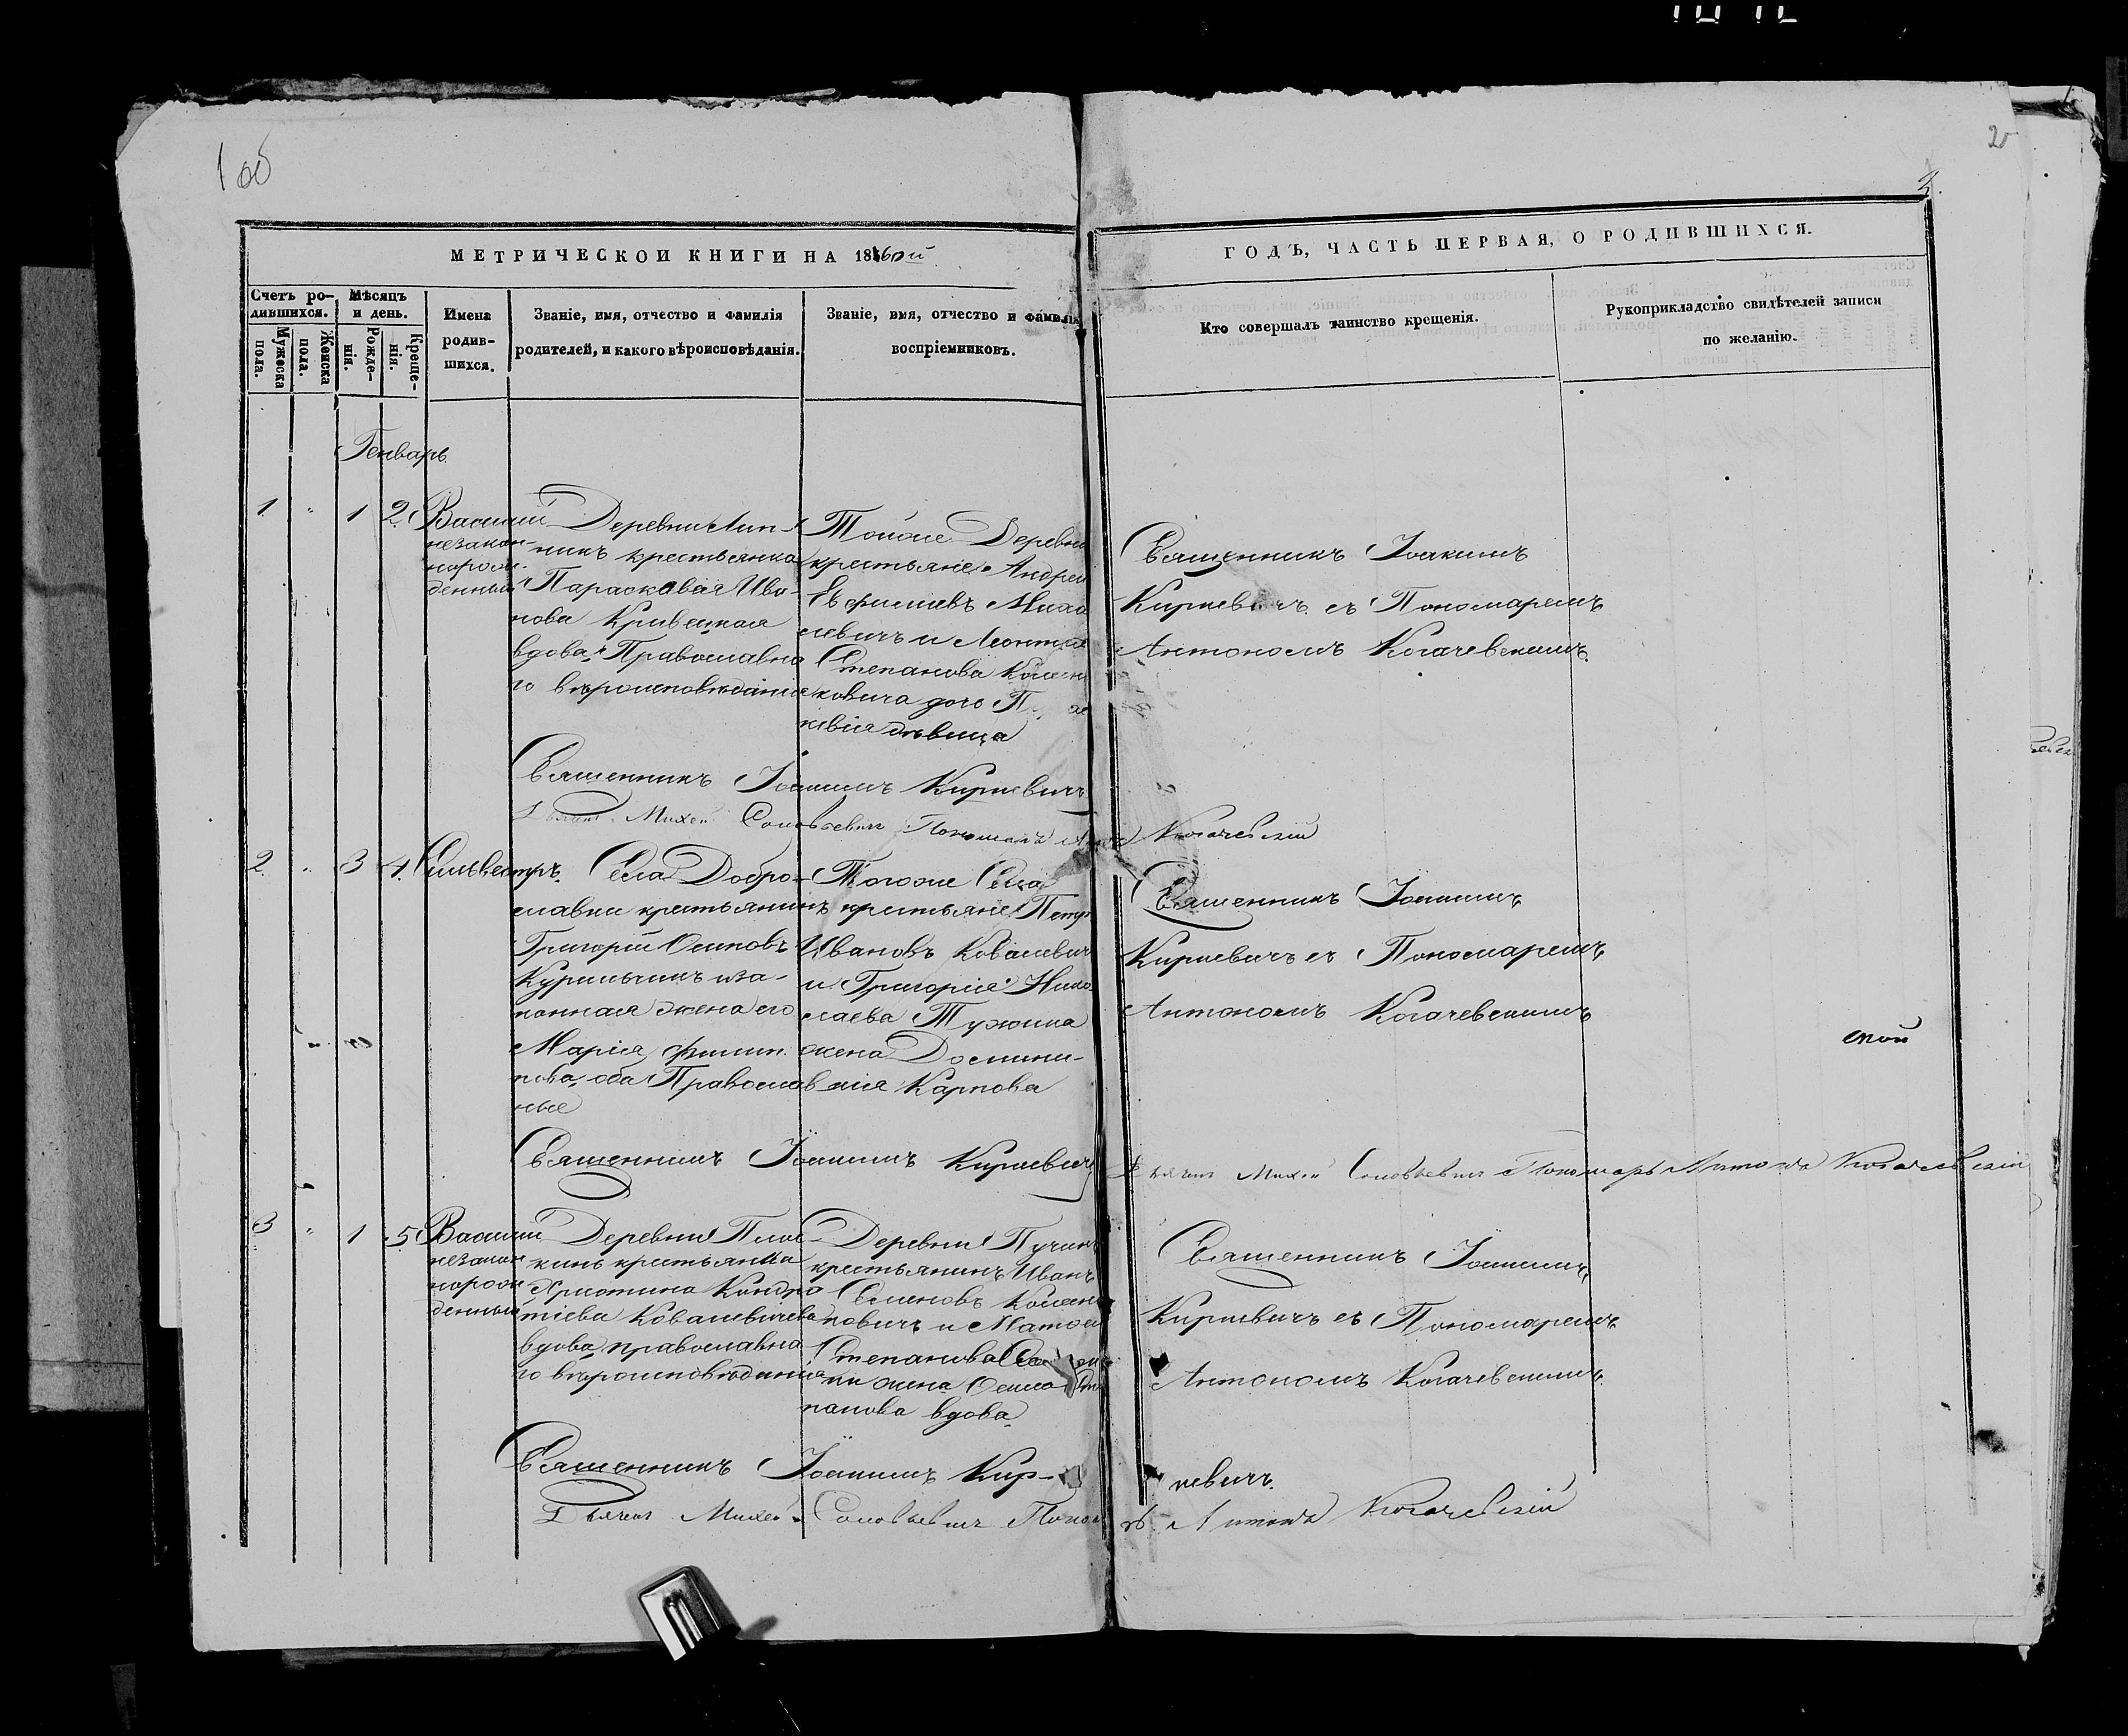 1 об
2
2.
МЕТРИЧЕСКОИ КНИГИ НА 1860й
ГОДЪ, ЧАСТЬ ПЕРВАЯ, О РОДИВШИХСЯ.
Счетъ ро-
дившихся.
Мѣсяцъ
и день.
Мужеска
пола.
Женска
пола.
Рожде-
нія.
Креще-
нія.
Имена
родив-
шихся.
Званіе, имя, отчество и фамилія
родителей, и какого вѣроисповѣданія.
Званіе, имя, отчество и фамилія
воспріемниковъ.
Кто совершалъ таинство крещенія.
Рукоприкладство свидѣтелей записи
по желанію.
Генварь.
1 " 1 2
Василій
незакон-
норож-
денный
Деревни Лип-
никъ крестьянка
Параскавія Ива-
нова Кривецкая
вдова Православна
го вѣроисповѣданія
Тойже Деревни
крестьяне Андрей
Евфимиевъ
и Леонтія
Степанова
кевія дѣвица
Священникъ Іоакимъ
Киркевичъ съ Пономаремъ
Антономъ Когачевскимъ.
Священникъ Іоакимъ Киркевичъ
Дьячекъ Михей Соловьевичъ Пономарь Когачевскій
2. " 3 4.
Сильвестръ.
Села Добро-
славки крестьянинъ
Григорій Осиповъ
и за-
конная жена его
Марія Филип-
пова, оба Православ
ные
Тогоже Села
крестьяне Петръ
Ивановъ Ковалевичъ
и Григорія Нико
лаева
жена Домини-
кія Карпова
Священникъ Іоакимъ
Киркевичъ съ Пономаремъ
Антономъ Когачевскимъ
ской
Священникъ Іоакимъ Киркевичъ
Дьячекъ Михей Соловьевичъ Пономарь Антонъ Когачевскій
3 " 1 5
Василій
незакон
норож
денный
Деревни Плос-
кинь крестьянка
Христина Кондра
тіева Ковалевичева
вдова, православна
го вѣроисповѣданія
Деревни Пучинъ
крестьянинъ Иванъ
Семеновъ
повичъ и
Степанова
жена
панова вдова
Священникъ Іоакимъ
Киркевичъ съ Пономаремъ
Антономъ Когачевскимъ.
Священникъ Іоакимъ Кир-
кевичъ.
Дьячекъ Михей Соловьевичъ Антонъ Когачевскій